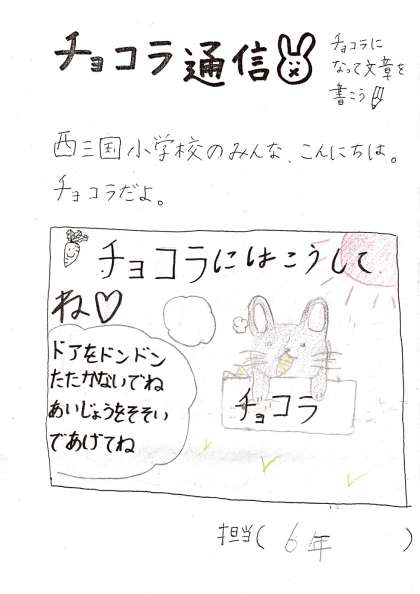 チョコラ通信
チョコラに
なって文章を
書こう
西三国小学校のみんな、こんにちは。
チョコラだよ。
チョコラにはこうして
ね♡
ドアをドンドン
たたかないでね
あいじょうをそそい
であげてね
チョコラ
担当(6年)